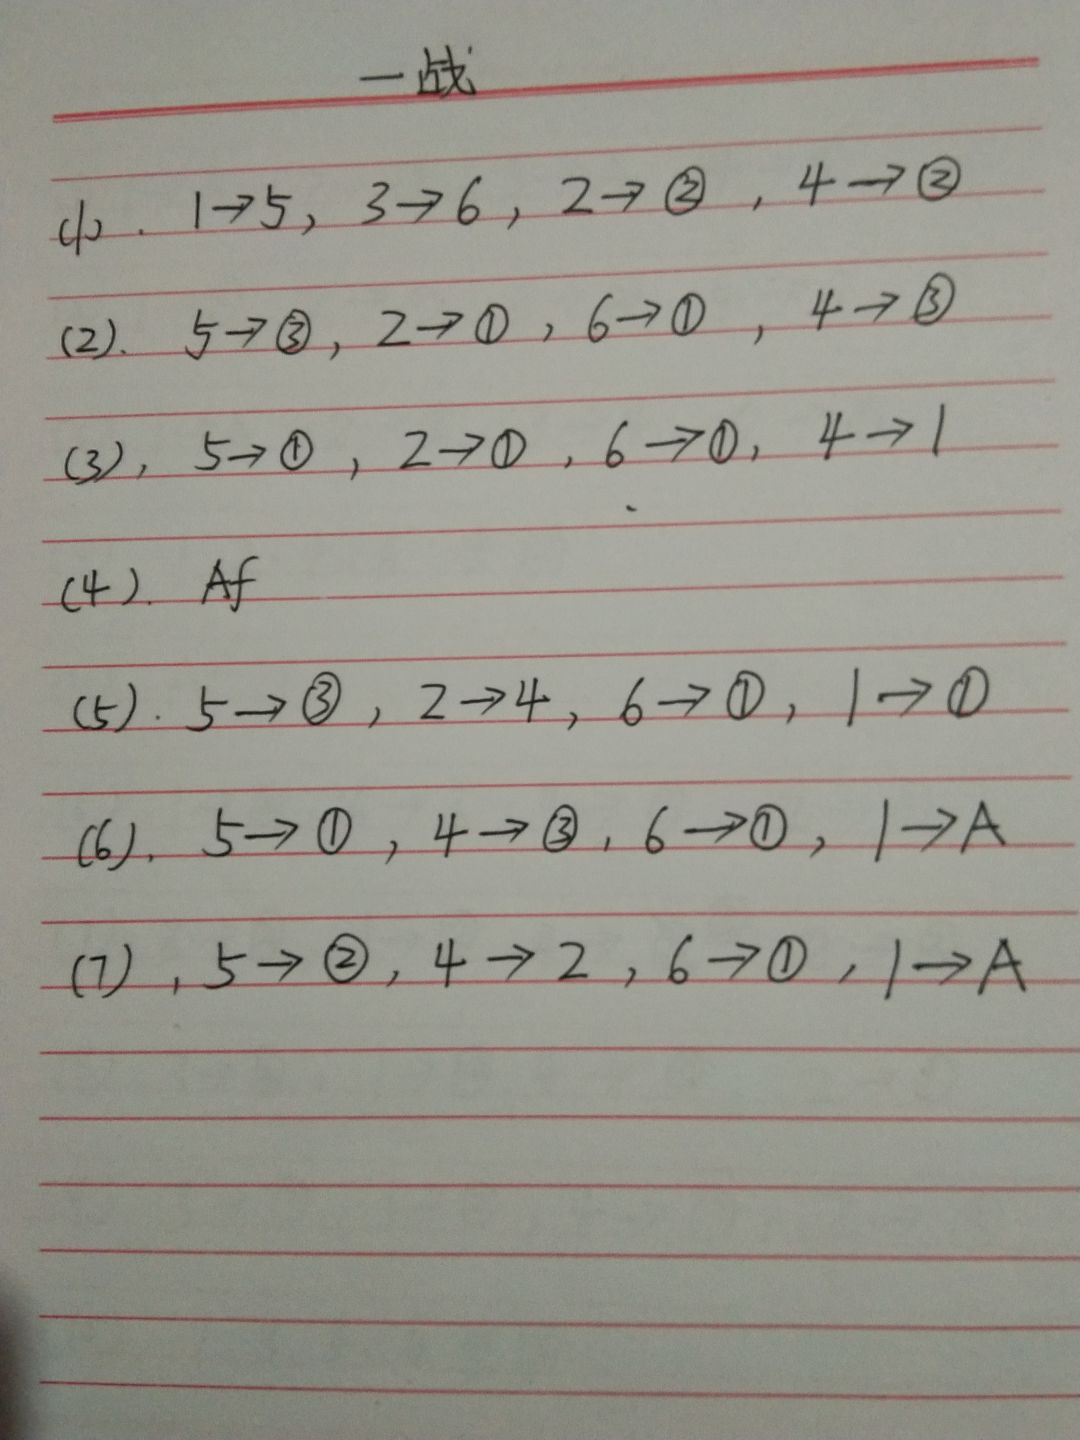 一战
(1). 1→5, 3→6, 2→②, 4→②
(2). 5→③, 2→①, 6→①, 4→③
(3), 5→①, 2→①, 6→①, 4→1
(4). Af
(5). 5→③, 2→4, 6→①, 1→①
(6). 5→①, 4→③, 6→①, 1→A
(7), 5→②, 4→2, 6→①, 1→A